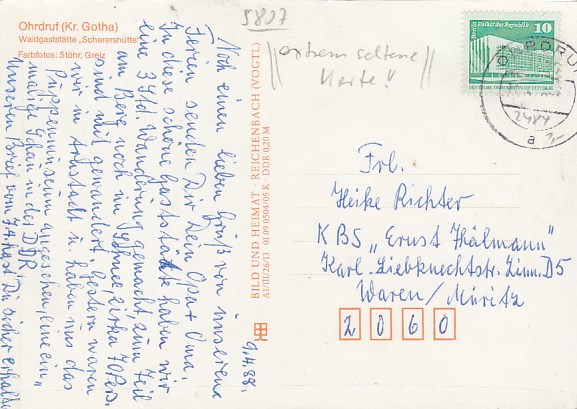 Ohrdruf (Kr. Gotha)
Waldgaststätte „Scherershütte"
Farbfotos: Stöhr, Greiz
5807
extrem seltene
Karte!
10
Palast der Republik
DEUTSCHE DEMOKRATISCHE REPUBLIK
OHRDRUF
a
BILD UND HEIMAT · REICHENBACH (VOGTL)
A1/III/26/13 01 09 0504/05 K DDR 0,20 M
9.4.88.
Noch einen lieben Gruß von unseren
Ferien senden Dir Dein Opa + Oma.
In diese schöne Gaststätte haben wir
eine 3 Std. Wanderung gemacht, zum Teil
am Berg noch im Schnee, zirka 70 Pers.
sind mit gewandert. Gestern waren
wir in Arnstadt u. haben uns das
Puppenmuseum angesehen, eine ein„
malige Schau in der DDR.
Unseren Brief vom 7.4. hast Du sicher erhalten
Frl.
Heike Richter
KBS „Ernst Thälmann"
Karl-Liebknechtstr. Zimm. D5
Waren/Müritz
2060